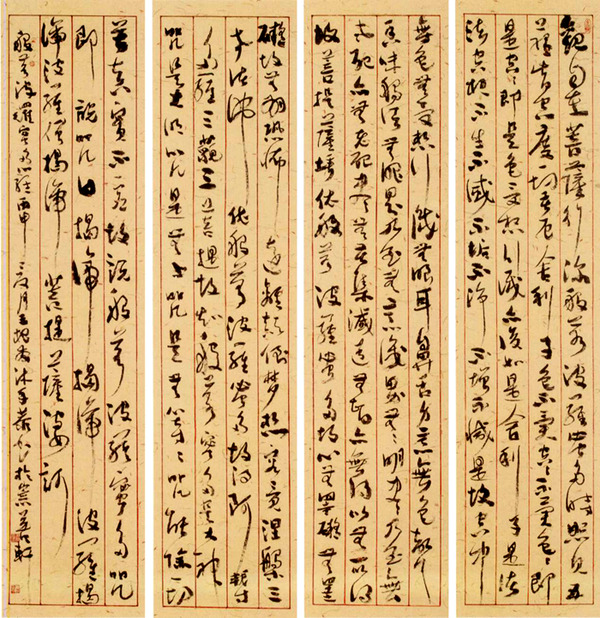 觀自在菩薩行深般若波羅蜜多時照見五
蘊皆空度一切苦厄舍利子色不異空々不異色々即
是空々即是色受想行識亦復如是舍利子是諸
法空相不生不滅不垢不淨不增不減是故空中
無色無受想行識無眼耳鼻舌身意無色聲
香味觸法無眼界乃至無意識界無々明亦無乃至無
老死亦無老死盡無苦集滅道無智亦無得以無所得
故菩提薩埵依般若波羅蜜多故心無罣礙無罣
礙故無有恐怖遠離顛倒夢想究竟涅槃三
世諸佛依般若波羅蜜多故得阿耨
多羅三藐三菩提故知般若波羅蜜多是大神
咒是大明咒是無上咒是無等々咒能除一切
苦真實不虛故說般若波羅蜜多咒
即說咒曰揭諦揭諦波羅揭
諦波羅僧揭諦菩提薩婆訶
般若波羅蜜多心經丙申月沐手恭書於軒